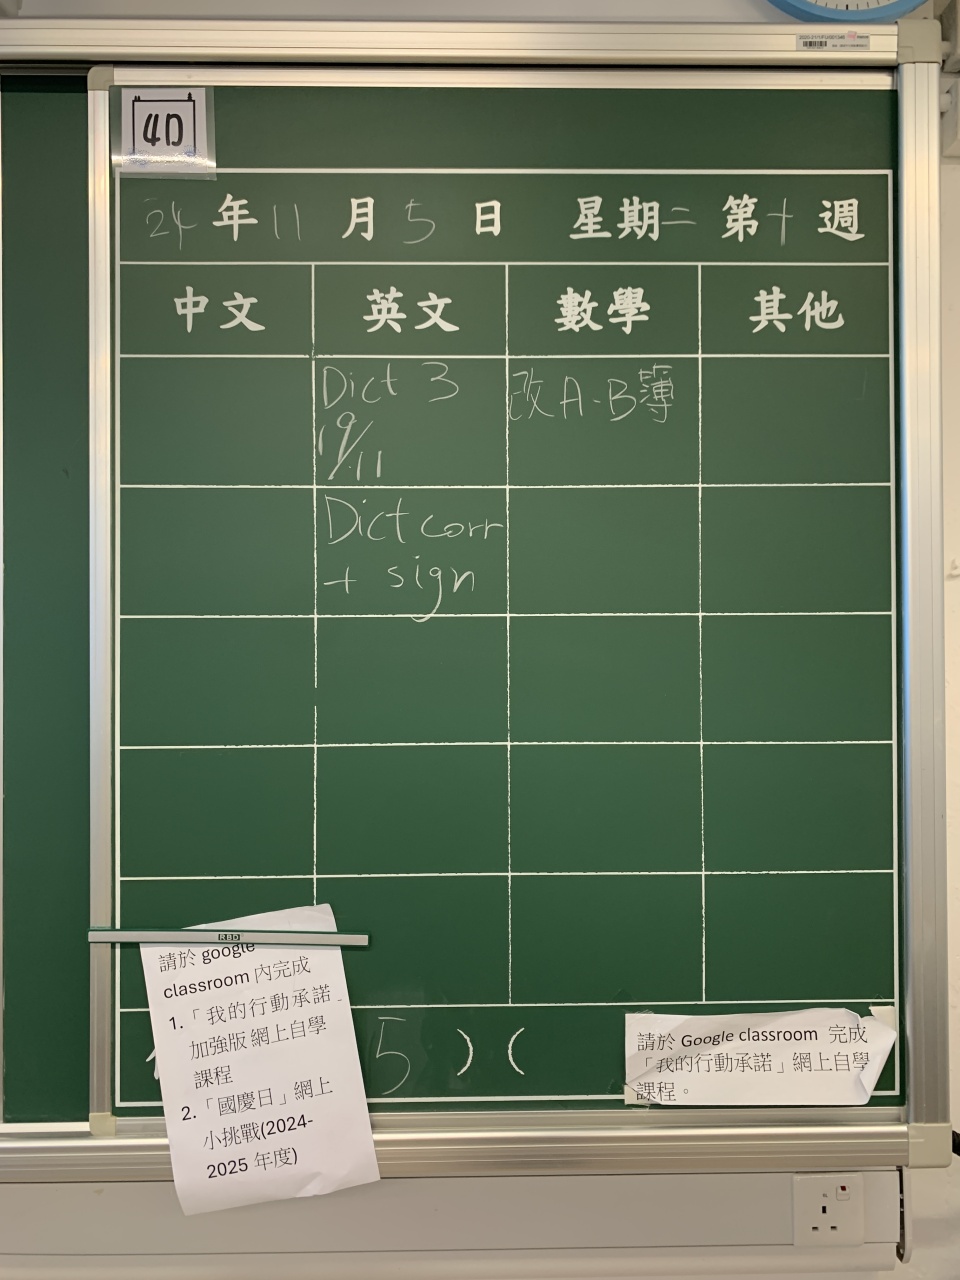 4D
24年11月5日 星期二 第十週
中文 英文 數學 其他
Dict 3
19/11
改A-B簿
Dict corr
+ sign
RBD
請於 google
classroom 內完成
1.「我的行動承諾_
加強版 網上自學
課程
2.「國慶日」網上
小挑戰(2024-
2025 年度)
5 )(
請於 Google classroom 完成
「我的行動承諾」網上自學
課程。